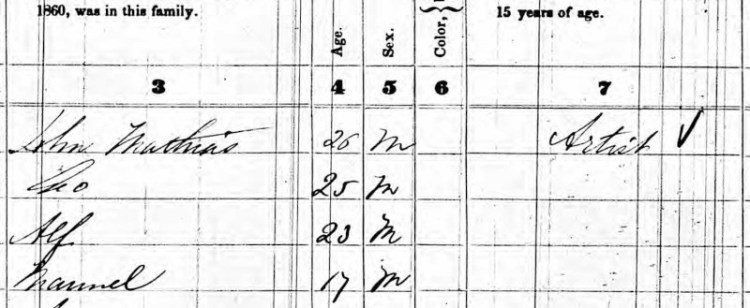 1860, was in this family.
Age.
Sex.
Color,
15 years of age.
3 4 5 6 7
John Mathias 26 M Artist ✓
Geo 25 M
Alf 23 M
Manuel 17 M